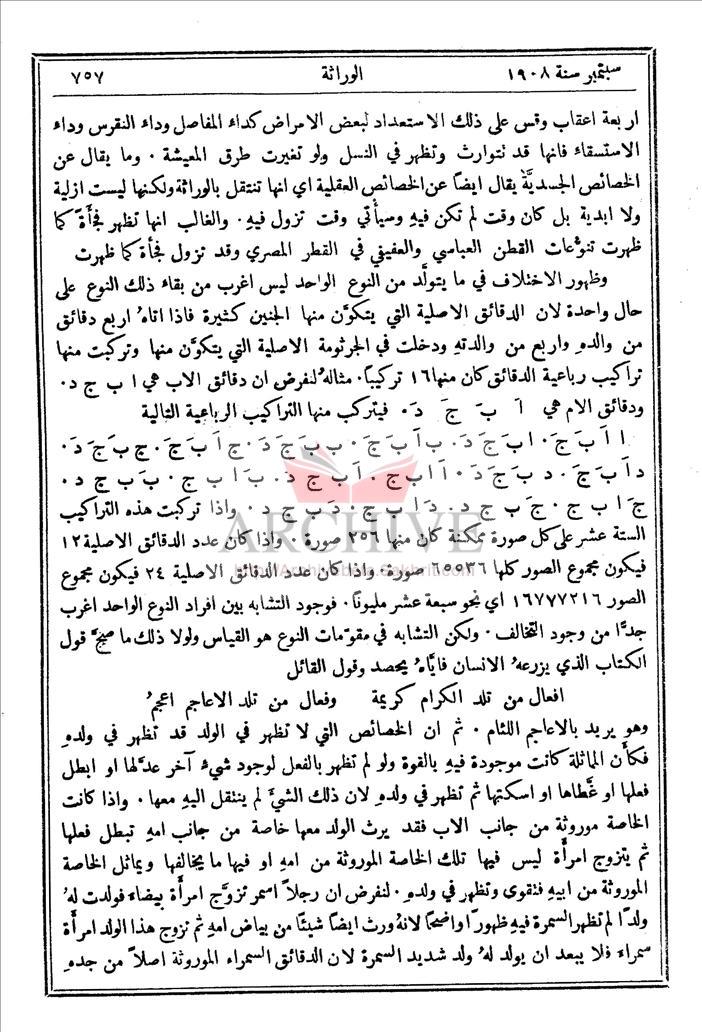 سبتمبر سنة ١٩٠٨
الوراثة
٧٥٧
اربعة اعقاب وقس على ذلك الاستعداد لبعض الامراض كداء المفاصل وداء النقرس وداء
الاستسقاء فانها قد تتوارث وتظهر في النسل ولو تغيرت طرق المعيشة . وما يقال عن
الخصائص الجسديَّة يقال ايضاً عن الخصائص العقلية اي انها تنتقل بالوراثة ولكنها ليست ازلية
ولا ابدية بل كان وقت لم تكن فيهِ وسيأتي وقت تزول فيهِ . والغالب انها تظهر فجأَةً كما
ظهرت تنوُّعات القطن العباسي والعفيفي في القطر المصري وقد تزول فجأة كما ظهرت
وظهور الاختلاف في ما يتولَّد من النوع الواحد ليس اغرب من بقاء ذلك النوع على
حال واحدة لان الدقائق الاصلية التي يتكوَّن منها الجنين كثيرة فاذا اتاهُ اربع دقائق
من والدهِ واربع من والدتهِ ودخلت في الجرثومة الاصلية التي يتكوَّن منها وتركبت منها
تراكيب رباعية الدقائق كان منها ١٦ تركيباً . مثالهُ لنفرض ان دقائق الاب هي ا ب ج د .
ودقائق الام هي اَ بَ جَ دَ . فيتركب منها التراكيب الرباعية التالية
الستة عشر على كل صورة ممكنة كان منها ٢٥٦ صورة . واذا كان عدد الدقائق الاصلية ١٢
فيكون مجموع الصور كلها ٦٥٥٣٦ صورة واذا كان عدد الدقائق الاصلية ٢٤ فيكون مجموع
الصور ١٦٧٧٧٢١٦ اي نحو سبعة عشر مليوناً . فوجود التشابه بين افراد النوع الواحد اغرب
جدًّا من وجود التخالف . ولكن التشابه في مقوّمات النوع هو القياس ولولا ذلك ما صحَّ قول
الكتاب الذي يزرعهُ الانسان فايَّاهُ يحصد وقول القائل
افعال من تلد الكرام كريمة وفعال من تلد الاعاجم اعجمُ
وهو يريد بالاعاجم اللئام . ثم ان الخصائص التي لا تظهر في الولد قد تظهر في ولدهِ
فكأَن المماثلة كانت موجودة فيهِ بالقوة ولو لم تظهر بالفعل لوجود شيءٍ آخر عدَّلها او ابطل
فعلها او غطَّاها او اسكنها ثم تظهر في ولدهِ لان ذلك الشيَّ لم ينتقل اليهِ معها . واذا كانت
الخاصة موروثة من جانب الاب فقد يرث الولد معها خاصة من جانب امهِ تبطل فعلها
ثم يتزوج امرأَة ليس فيها تلك الخاصة الموروثة من امهِ او فيها ما يخالفها ويماثل الخاصة
الموروثة من ابيهِ فتقوى وتظهر في ولدهِ . لنفرض ان رجلاً اسمر تزوَّج امرأَة بيضاء فولدت لهُ
ولدًا لم تظهر السمرة فيهِ ظهورًا واضحًا لانهُ ورث ايضاً شيئًا من بياض امهِ ثم تزوج هذا الولد امرأَة
سمراء فلا يبعد ان يولد لهُ ولد شديد السمرة لان الدقائق السمراء الموروثة اصلاً من جدهِ
ARCHIVE